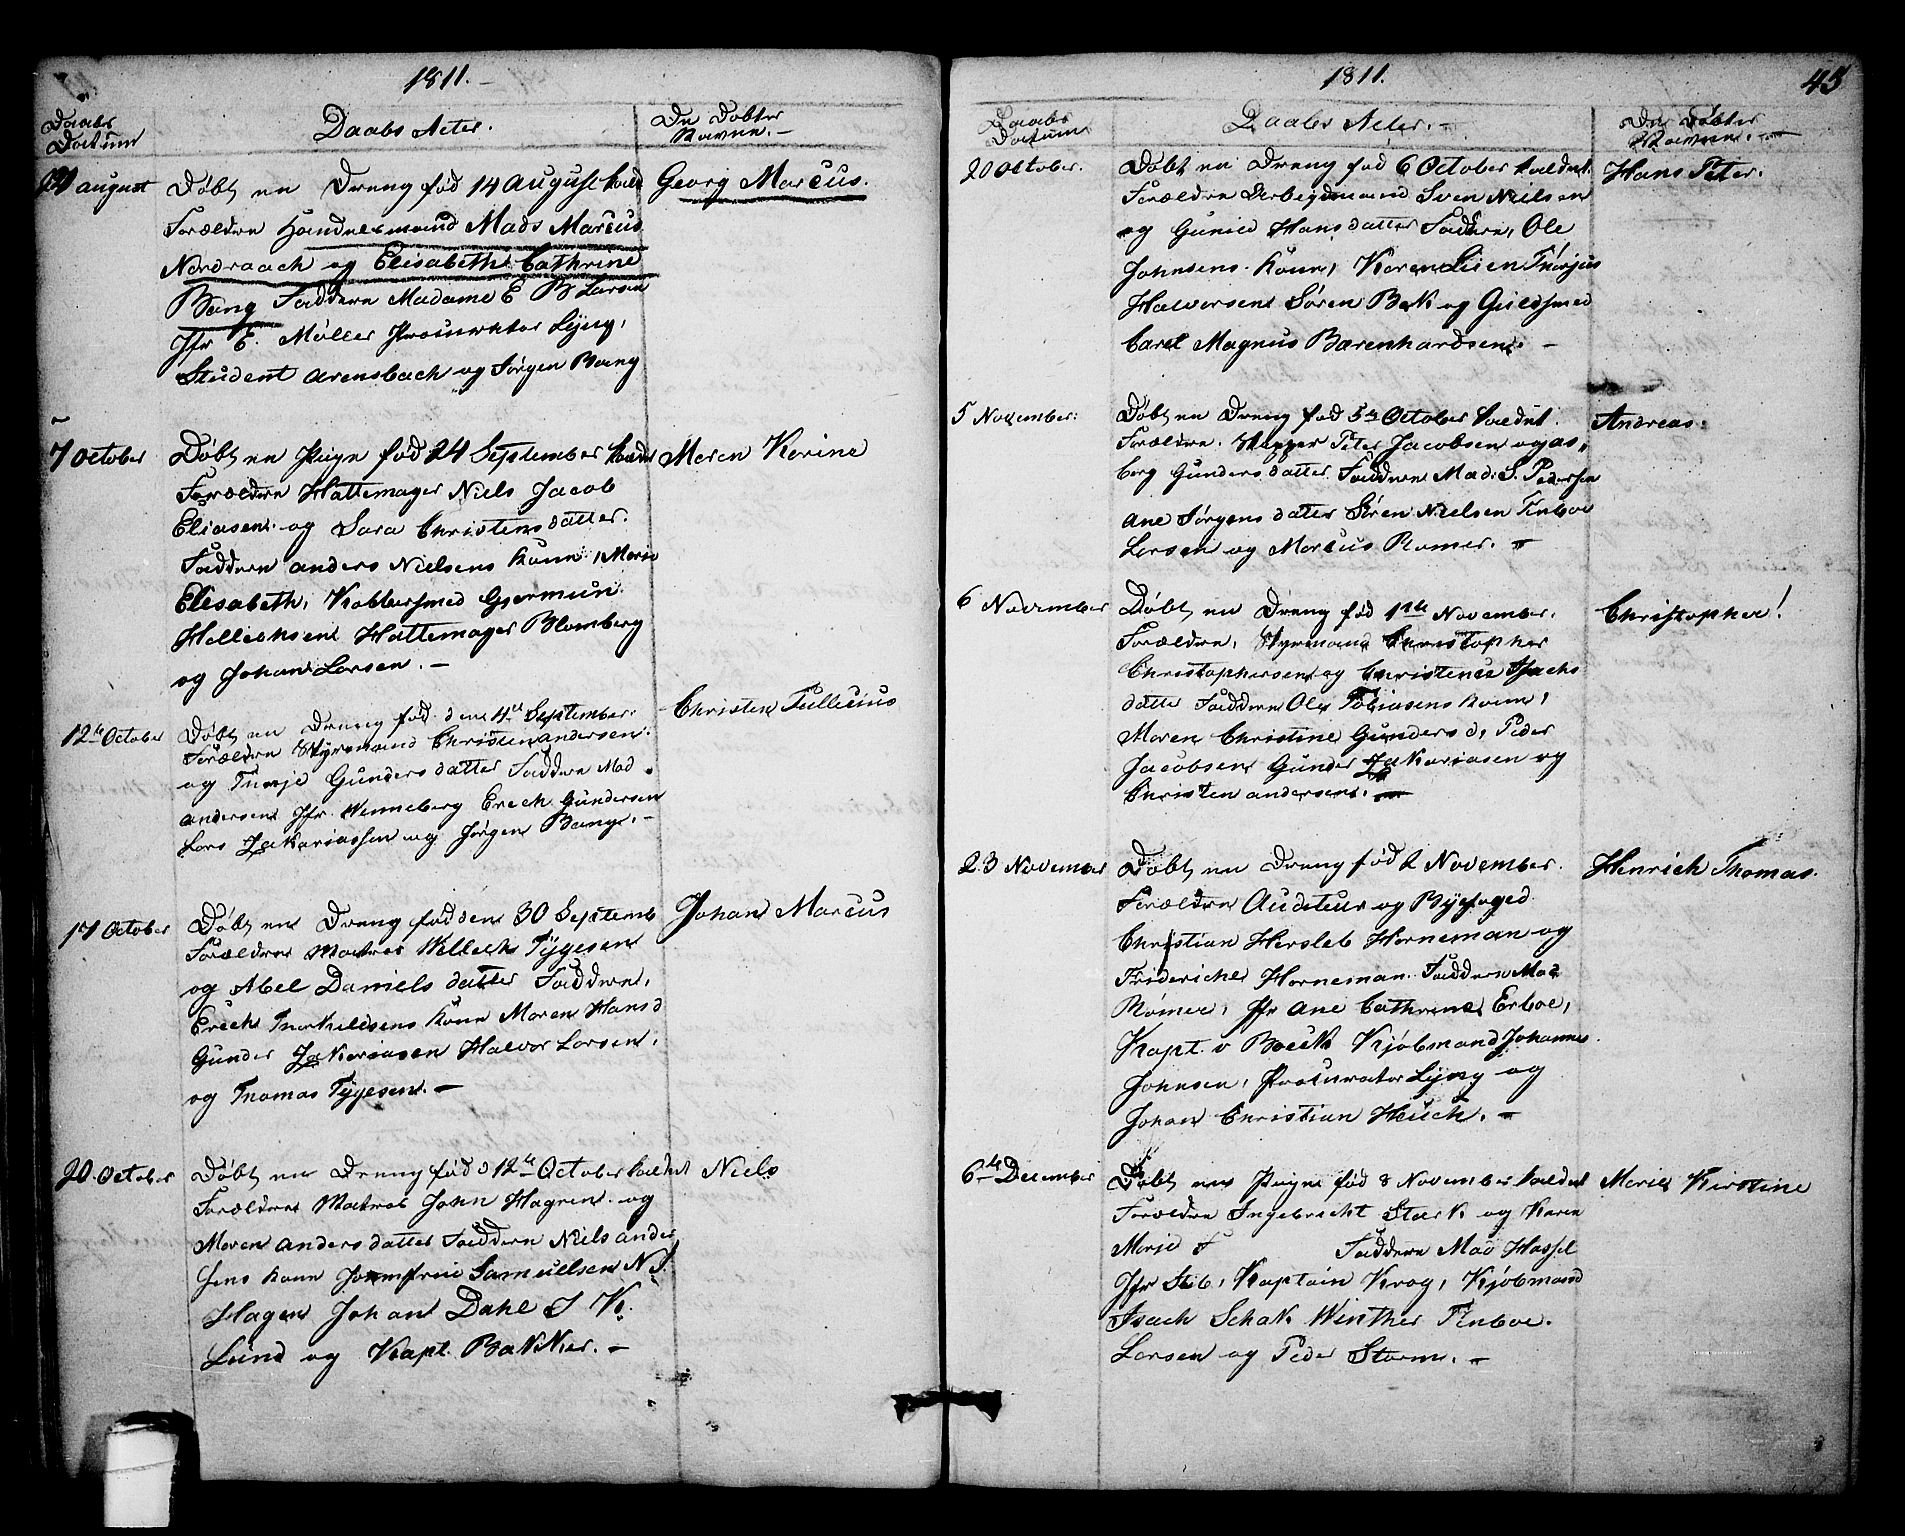 1811.
Daabs Datum
Daabs Acter.
De Døbtes Navne.
August
Døbt en Dreng fød 14 August kald
Georg Marcus.
Forældre Handelsmand Mads Marcus
Nordraach og Elisabeth Cathrine
Bang Faddere Madame E B Larsen
Jfr E. Møller Procurator Lyng,
Student Arensbach og Jørgen Bang
7 October
Døbt en Pige fød 24 September kaldet
Maren Karine
Forældre Hattemager Niels Jacob
Eliasen og Sara Christensdatter.
Faddere Anders Nielsens Kone, Marie
Elisabeth, Kobbersmed Gjermun
Hattemager Blomberg
og Johan Larsen. —
12te October
Døbt en Dreng fød den 4de September.
Christen Tullecius
Forældre Styrmand Christen Andersen
og Torje Gundersdatter Faddere Mad
Andersen Jfr. Wenneberg Erech Gundersen
Lars Zakariassen og Jørgen Bang. —
17 October
Døbt en Dreng fød den 30 Septemb
Johan Marcus
Forældre Matros Willech Tygesen
og Abel Daniels datter Faddere,
Erech Torkildsens Kone Maren Hans d
Gunder Zakariasen Halvor Larsen,
og Thomas Tygesen. —
20 October
Døbt en Dreng fød 12te October kaldet
Niels
Forældre Matros John Hagren og
Maren Anders datter Faddere Niels Ander
sens Kone Jomfrue Samuelsen N. J.
Hagen Johan Dahl J K.
Lund og Kapt. Bakker. —
1811.
45
Daabs Datum
Daabs Acter. —
De Døbtes Navne. —
20 October.
Døbt en Dreng fød 6 October kaldet.
Hans Peter.
Forældre Arbeidsmand Sven Nielsen
og Gunild Hansdatter Faddere, Ole
Johnsens Kone, Karen Lien Torjus
Halvorsen Søren Bek og Guldsmed
Carel Magnus Barenhardsen. —
5 November:
Døbt en Dreng fød 5te October kaldet.
Andreas.
Forældre. Skipper Peter Jacobsen og As„
berg Gundersdatter Faddere Mad: S. Pedersen
Ane Jørgens datter Søren Nielsen Finboe
Larsen og Marcus Romer. —
6 November
Døbt en Dreng fød 1te November.
Christopher!
Forældre, Styrmand Christopher
Christophersen og Christence Isachs
datter Faddere Ole Tobiasens Kone,
Maren Christine Gunders d, Peder
Jacobsen Gunder Zakariasen og
Christen Andersen. —
23 November
Døbt en Dreng fød 2 November.
Henrich Thomas.
Forældre Auditeur og Byefoged
Christian Hersleb Horneman og
Frideriche Horneman. Faddere Mad
Rømer, Jfr Ane Cathrine Erboe,
Kapt. v Beck Kjøbmand Johannes
Johnsen, Procurator Lyng og
Johan Christian Heuch. —
6te December
Døbt en Pige fød 8 November kaldet
Marie Kirstine
Forældre Ingebricht Stark og Karen
Marie F Faddere Mad Hassel
Jfr Stib, Kaptain Krog, Kjøbmand
Isach Schak Winther Finboe.
Larsen og Peder Storm. —